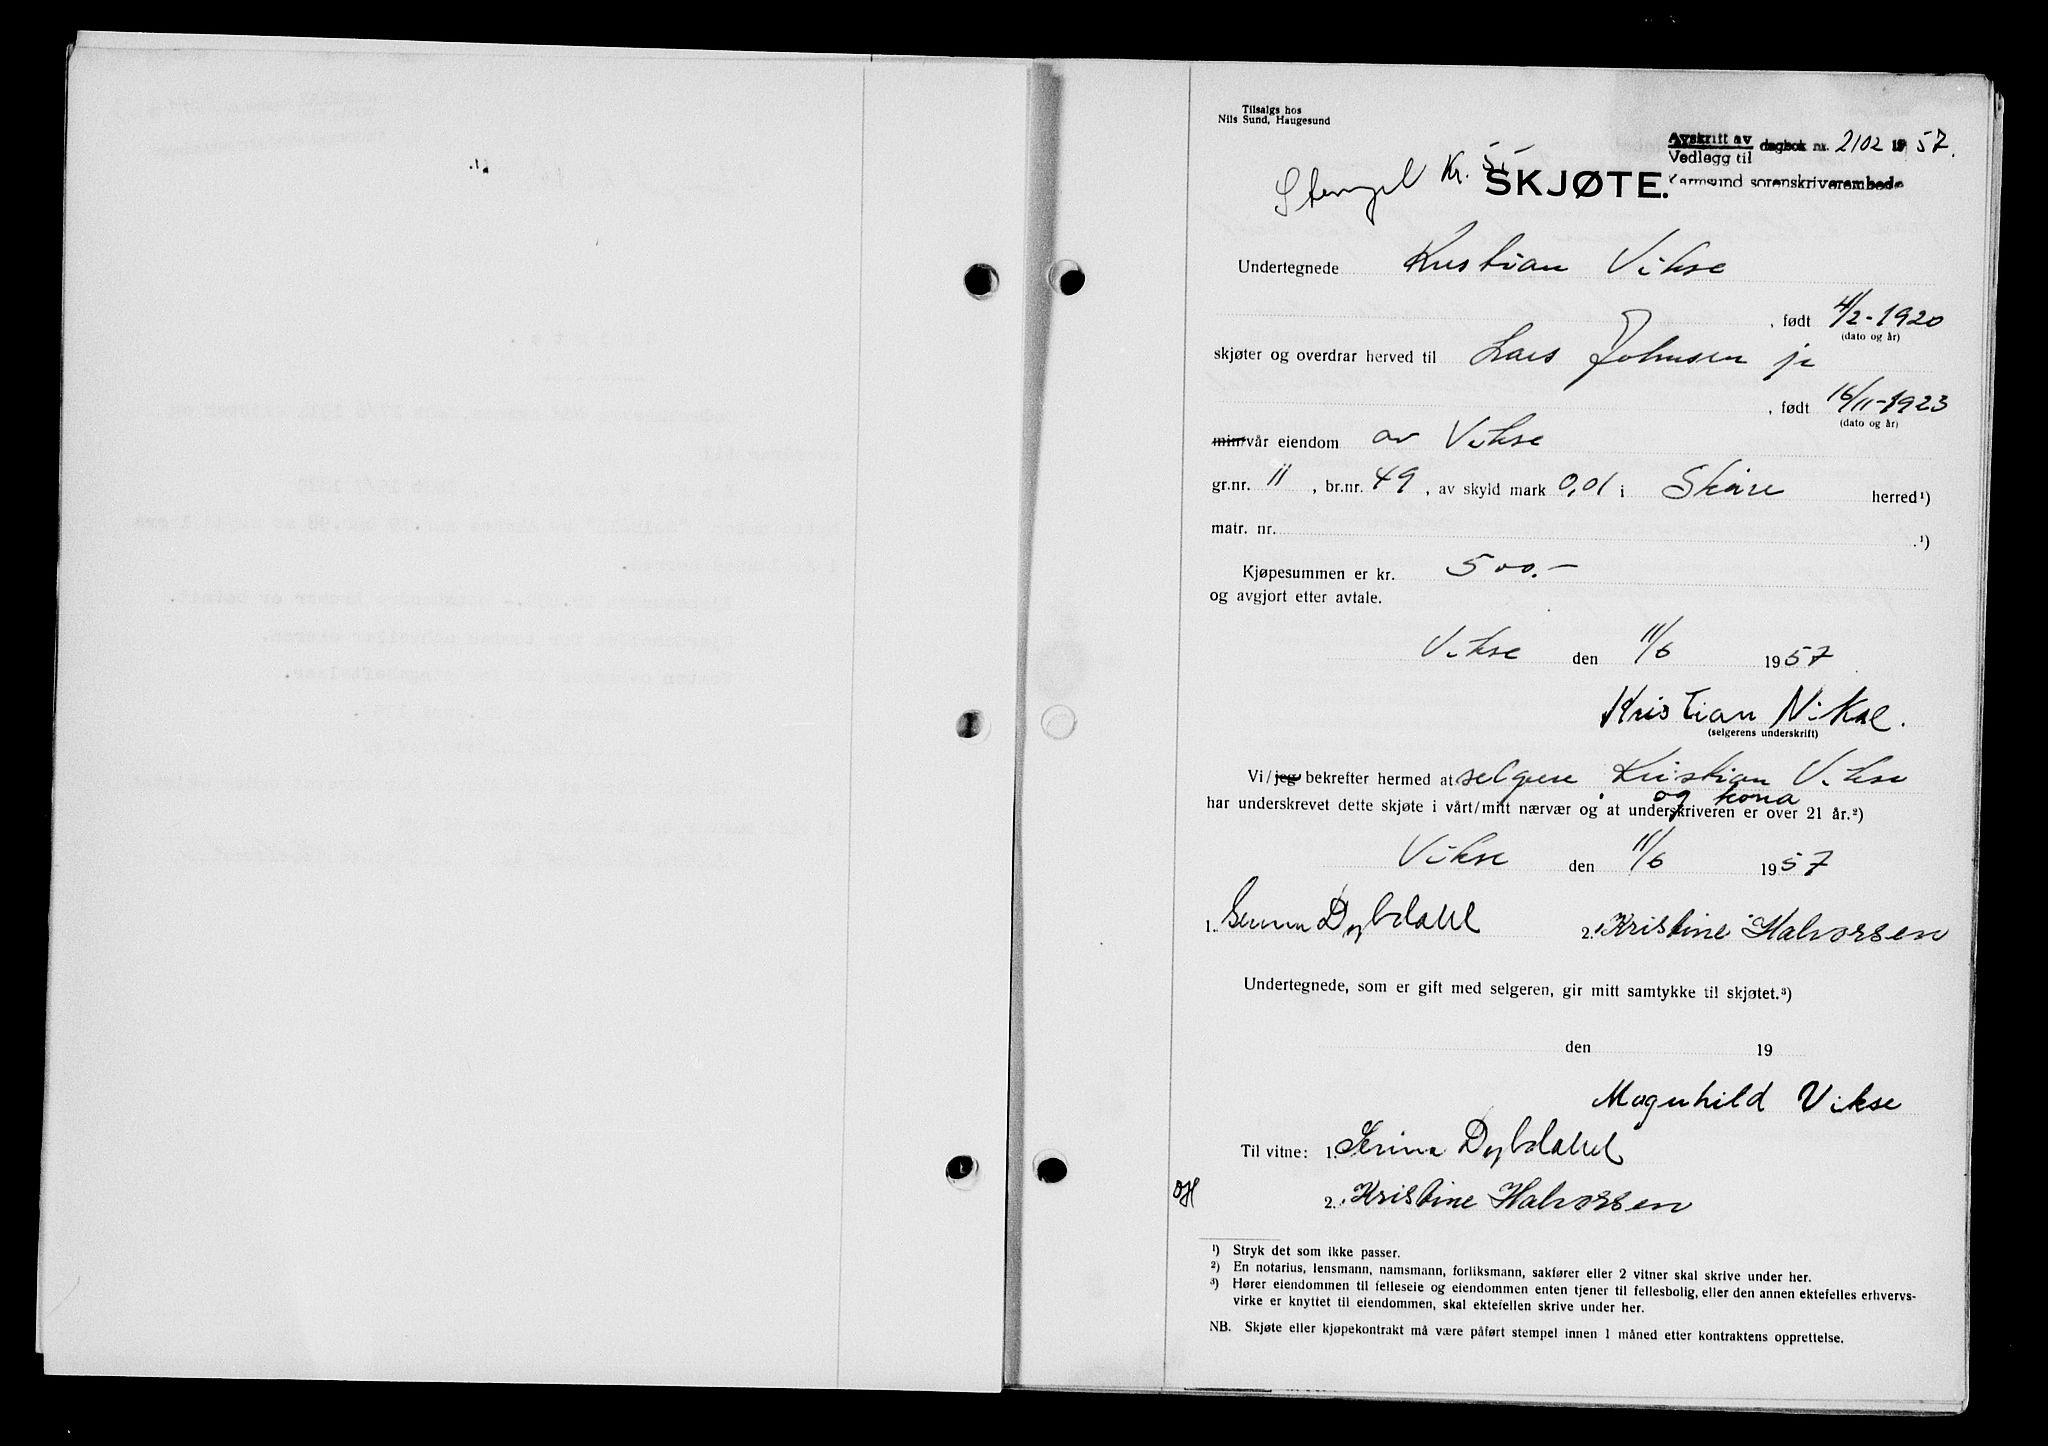 Tilsalgs hos
Nils Sund, Haugesund
Avskrift av
Vedlegg til
dagbok nr. 2102 1957.
Karmsund sorenskriverembede
Stempel Kr. 5.-
SKJØTE.
Undertegnede Kristian Vikse
, født 4/2-1920
(dato og år)
skjøter og overdrar herved til Lars Johnsen jr
, født 16/11-1923
(dato og år)
min/vår eiendom av Vikse
gr.nr. 11 , br.nr. 49 , av skyld mark 0,01 i Skåre herred¹)
matr. nr. .¹)
Kjøpesummen er kr. 500.-
og avgjort etter avtale.
Vikse den 11/6 1957
Kristian Vikse.
(selgerens underskrift)
Vi/jeg bekrefter hermed at selgere Kristian Vikse
og kona
har underskrevet dette skjøte i vårt/mitt nærvær og at underskriveren er over 21 år.²)
Vikse den 11/6 1957
1. Serina Dybdahl 2. Kristine Halvorsen
Undertegnede, som er gift med selgeren, gir mitt samtykke til skjøtet.³)
den 19
Magnhild Vikse
Til vitne: 1. Serina Dybdahl
OH
2. Kristine Halvorsen
¹) Stryk det som ikke passer.
²) En notarius, lensmann, namsmann, forliksmann, sakfører eller 2 vitner skal skrive under her.
³) Hører eiendommen til felleseie og eiendommen enten tjener til fellesbolig, eller den annen ektefelles erhvervs-
virke er knyttet til eiendommen, skal ektefellen skrive under her.
NB. Skjøte eller kjøpekontrakt må være påført stempel innen 1 måned etter kontraktens opprettelse.